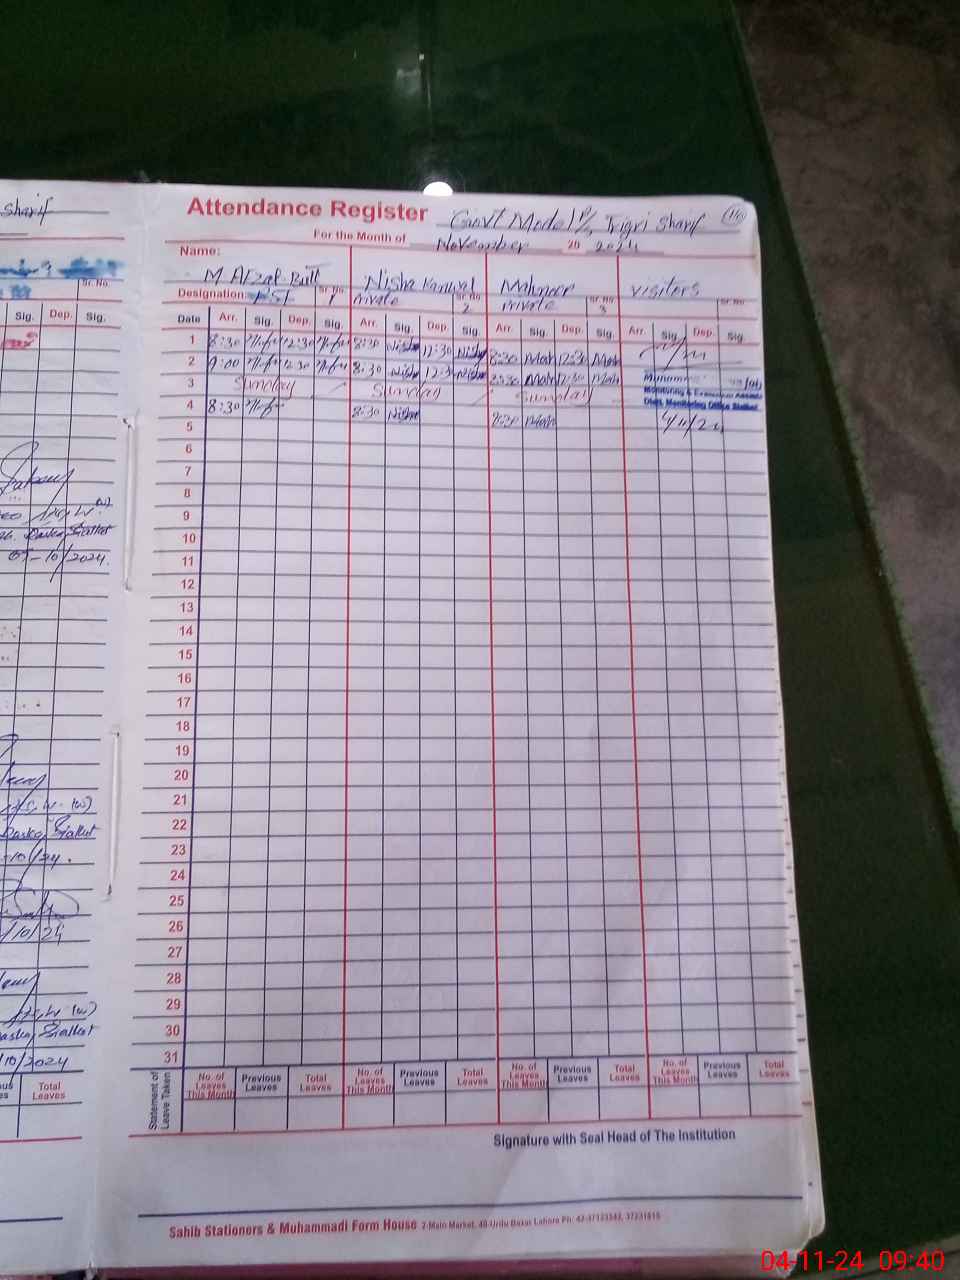 Sharif
Attendance Register Govt Model P/S Tigri Sharif
For the Month of November 20 2024
Name:
M Afzal Butt Nisha Kanwal Mahnoor visitors
Designation PST Sr. No. 1 Private Sr. No. 2 Private Sr. No. 3 Sr. No.
Date Arr. Sig. Dep. Sig. Arr. Sig. Dep. Sig. Arr. Sig. Dep. Sig. Arr. Sig. Dep. Sig.
1 8:30 12:30 8:30 Nisha 12:30 Nisha 8:30 Mah 12:30 Mah
2 9:00 12:30 8:30 Nisha 12:30 Nisha 8:30 Mah 12:30 Mah
3 Sunday Sunday Sunday
Monitoring & Evaluation
Distt. Monitoring Office Sialkot
4 8:30 8:30 Nisha 8:30 Mah
5 4/11/24
6
7
8
9
10
11
12
13
14
15
16
17
18
19
20
21
22
23
24
25
26
27
28
29
30
31
Statement of Leave Taken
No. of Leaves This Month Previous Leaves Total Leaves No. of Leaves This Month Previous Leaves Total Leaves No. of Leaves This Month Previous Leaves Total Leaves No. of Leaves This Month Previous Leaves Total Leaves
Signature with Seal Head of The Institution
Sahib Stationers & Muhammadi Form House 7-Main Market, 40-Urdu Bazar Lahore Ph:
Sr. No.
Sig. Dep. Sig.
Daska Sialkot
05-10/2024.
Daska Sialkot
10/24.
/10/24
Daska Sialkot
/10/2024
Total Leaves
04-11-24 09:40